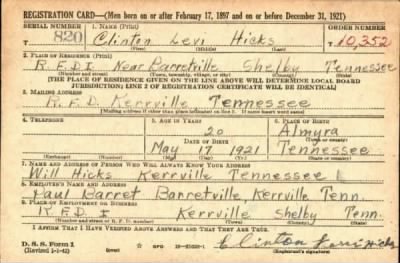 REGISTRATION CARD—(Men born on or after February 17, 1897 and on or before December 31, 1921)
SERIAL NUMBER 1. NAME (Print) ORDER NUMBER
820 Clinton Levi Hicks T 10,352
(First) (Middle) (Last)
2. PLACE OF RESIDENCE (Print)
R.F.D.1 Near Barretville Shelby Tennessee
(Number and street) (Town, township, village, or city) (County) (State)
[THE PLACE OF RESIDENCE GIVEN ON THE LINE ABOVE WILL DETERMINE LOCAL BOARD
JURISDICTION; LINE 2 OF REGISTRATION CERTIFICATE WILL BE IDENTICAL]
3. MAILING ADDRESS
R.F.D. Kerrville Tennessee
[Mailing address if other than place indicated on line 2. If same insert word same]
4. TELEPHONE 5. AGE IN YEARS 6. PLACE OF BIRTH
20 Almyra
DATE OF BIRTH (Town or county)
May 17 1921 Tennessee
(Exchange) (Number) (Mo.) (Day) (Yr.) (State or country)
7. NAME AND ADDRESS OF PERSON WHO WILL ALWAYS KNOW YOUR ADDRESS
Will Hicks Kerrville Tennessee
8. EMPLOYER'S NAME AND ADDRESS
Paul Barret Barretville, Kerrville Tenn.
9. PLACE OF EMPLOYMENT OR BUSINESS
R.F.D. 1 Kerrville Shelby Tenn.
(Number and street or R. F. D. number) (Town) (County) (State)
I AFFIRM THAT I HAVE VERIFIED ABOVE ANSWERS AND THAT THEY ARE TRUE.
D. S. S. Form 1 GPO Clinton Levi Hicks
(Revised 1-1-42) (Registrant's signature)